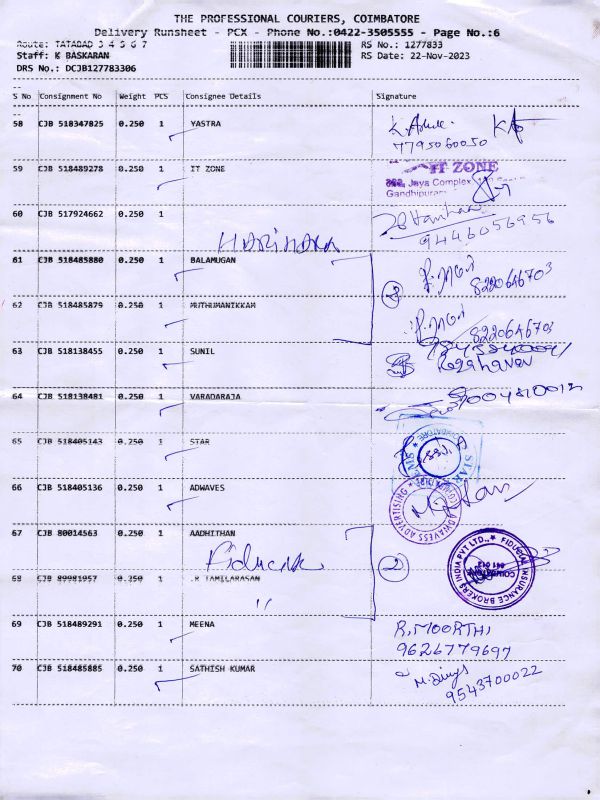 THE PROFESSIONAL COURIERS, COIMBATORE
Delivery Runsheet - PCX - Phone No.:0422-3505555 - Page No.:6
Route: TATABAD 3 4 5 6 7
RS No.: 1277833
Staff: K BASKARAN
RS Date: 22-Nov-2023
DRS No.: DCJB127783306
S No Consignment No Weight PCS Consignee Details Signature
58 CJB 518347825 0.250 1 YASTRA
7795060050
59 CJB 518489278 0.250 1 IT ZONE
IT ZONE
Jaya Complex
Gandhipuram
60 CJB 517924662 0.250 1
9446056956
HARIHARA
61 CJB 518485880 0.250 1 BALAMUGAN
8220646703
62 CJB 518485879 0.250 1 MUTHUMANIKKAM
8220646703
63 CJB 518138455 0.250 1 SUNIL
64 CJB 518138481 0.250 1 VARADARAJA
65 CJB 518405143 0.250 1 STAR
STAR
COIMBATORE
66 CJB 518405136 0.250 1 ADWAVES
ADWAVESS ADVERTISING
67 CJB 80014563 0.250 1 AADHITHAN
Fiducial
2
FIDUCIAL INSURANCE BROKERS INDIA PVT LTD.,
COIMBATORE
641 012
68 CJB 89981957 0.250 1 TAMILARASAN
"
69 CJB 518489291 0.250 1 MEENA
R. MOORTHI
9626779697
70 CJB 518485885 0.250 1 SATHISH KUMAR
9543700022